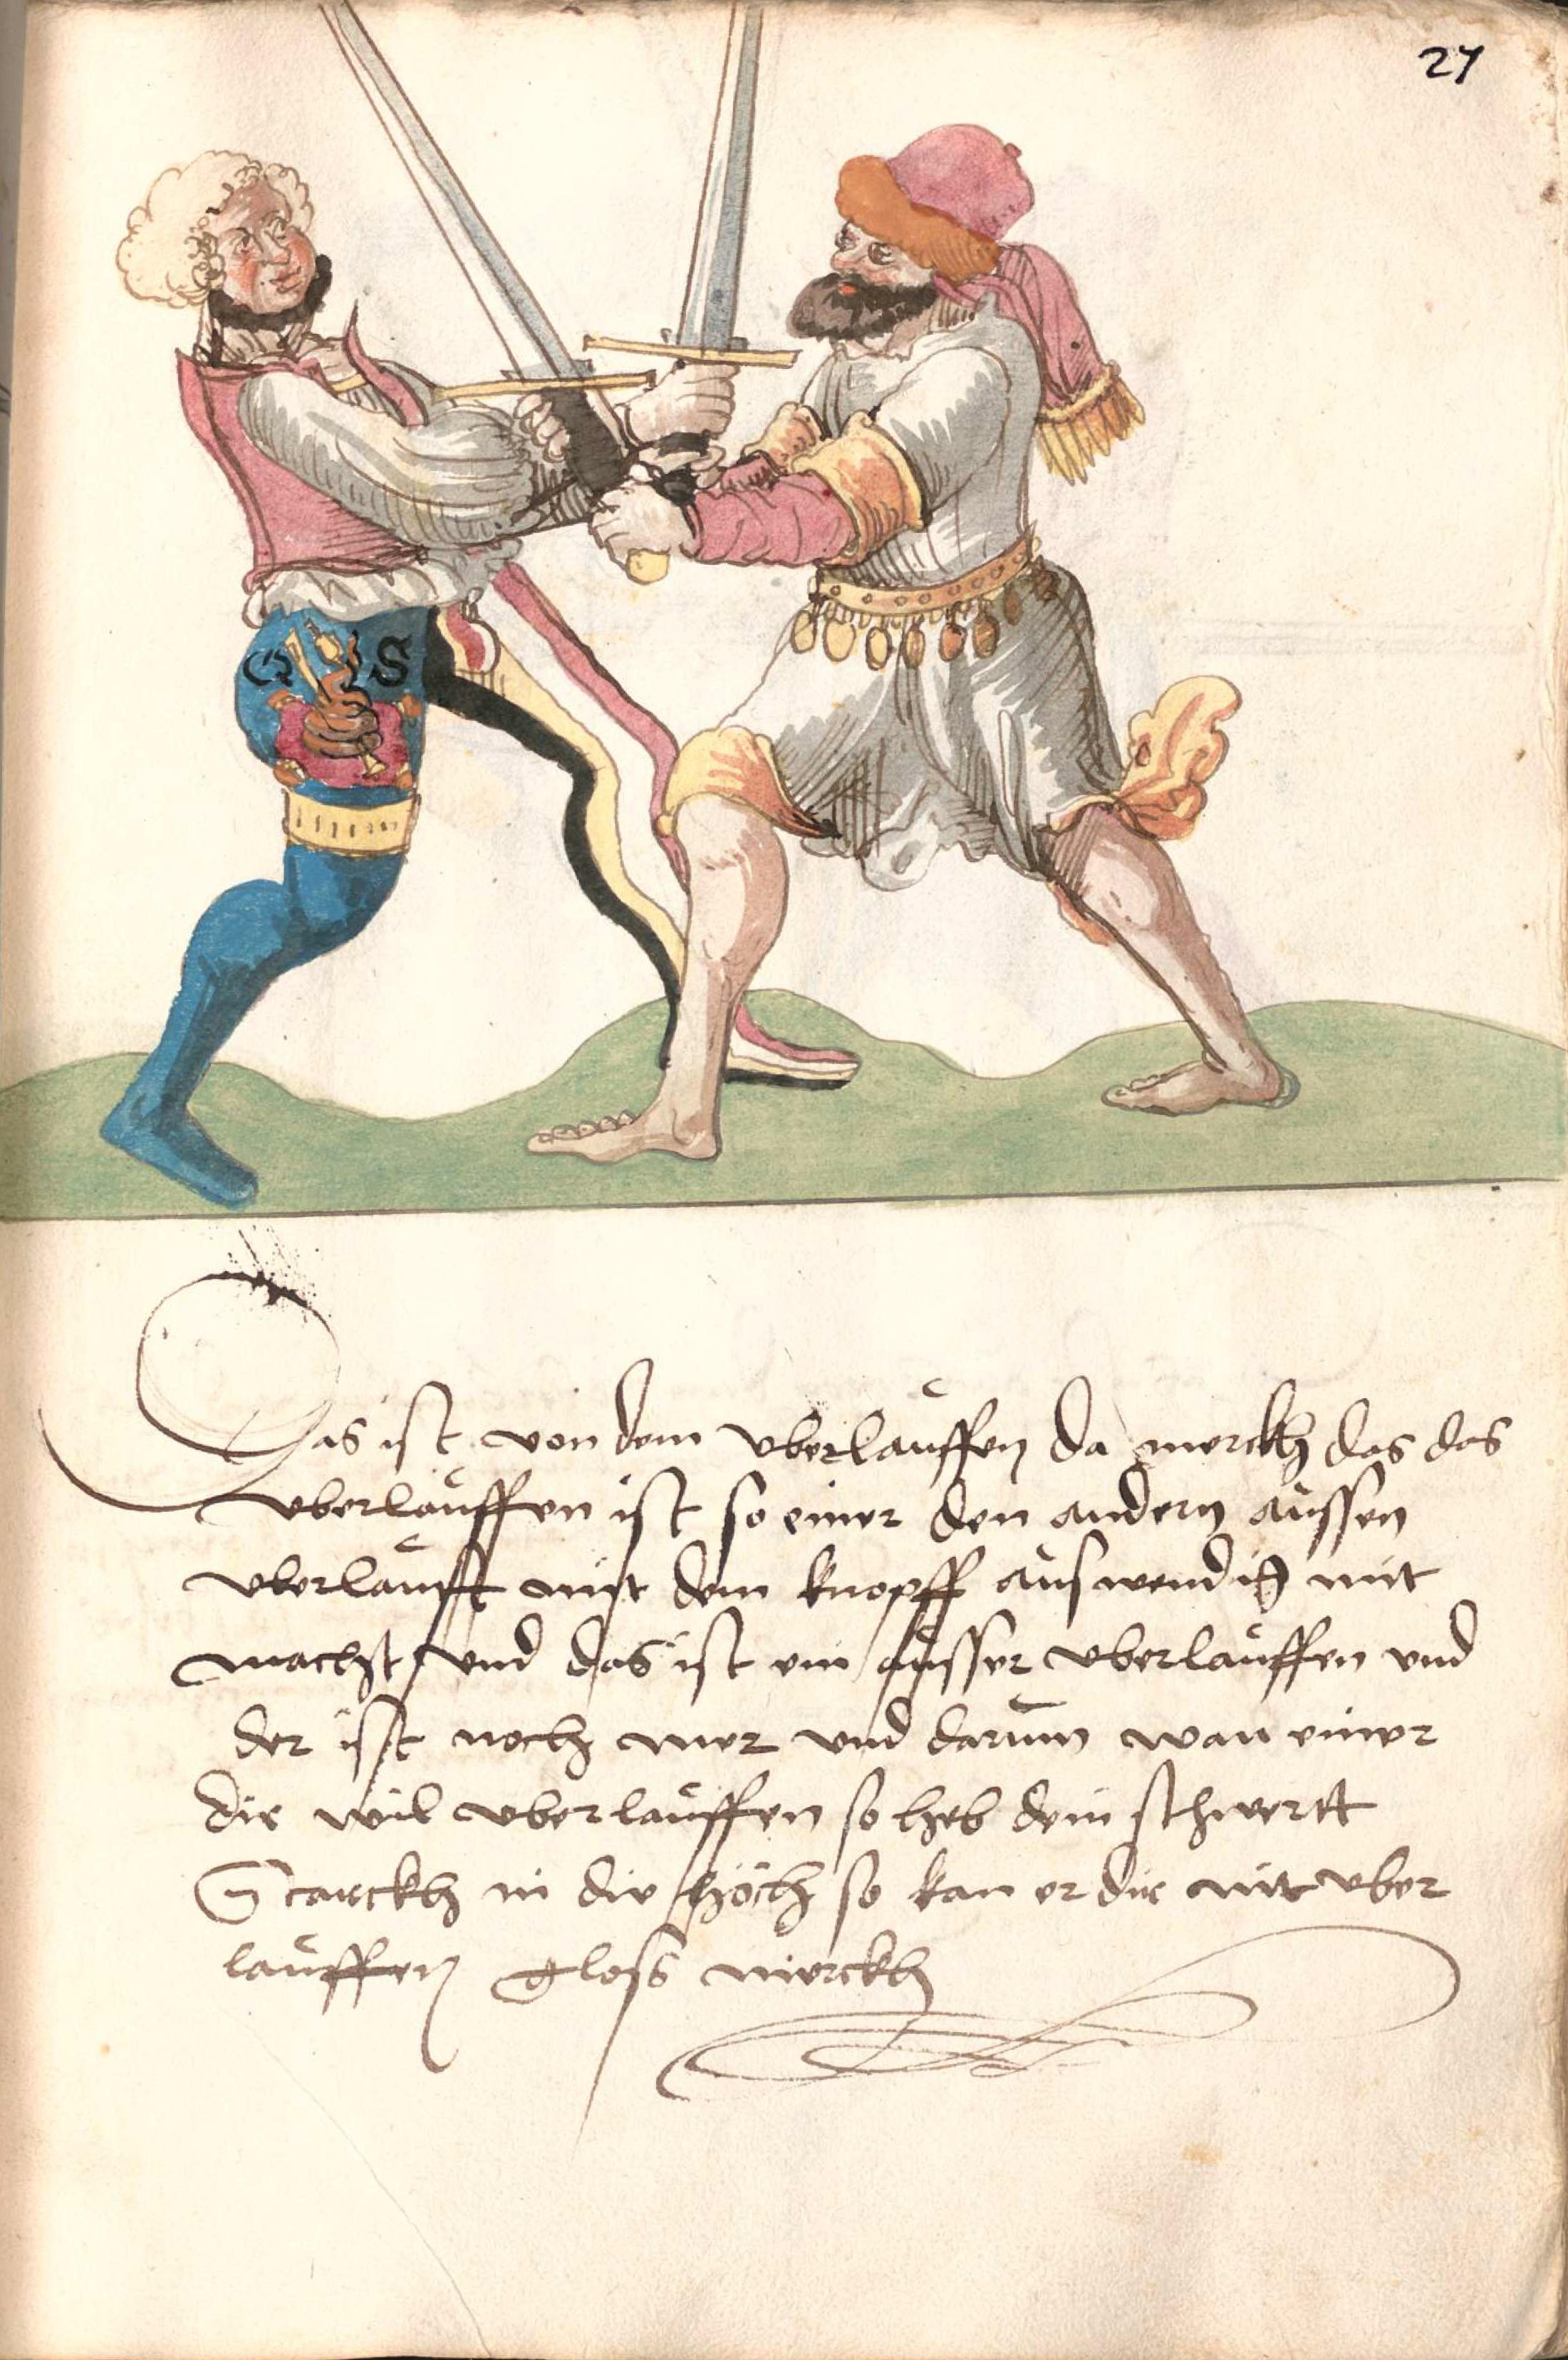 27
S
Das ist von dem vberlauffen da merckh das das
vberlauffen ist so einer den andern aussen
vberlaufft mit dem knopff auswendig mit
macht vnd das ist ein ausser vberlauffen vnd
der ist noch mer vnd darum wan einer
die wil vberlauffen so heb dein schwertt
starckh in die höch so kan er die nit vber
lauffen gloss merckh